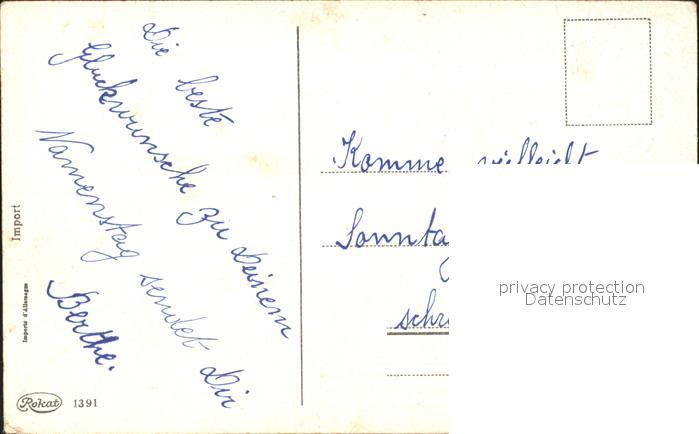 Die beste
Glückwunsche zu Deinem
Namenstag sendet Dir
Berthe.
Komme vielleicht
Sonnta
schr
privacy protection
Datenschutz
Import
Importé d'Allemagne
Rokat 1391